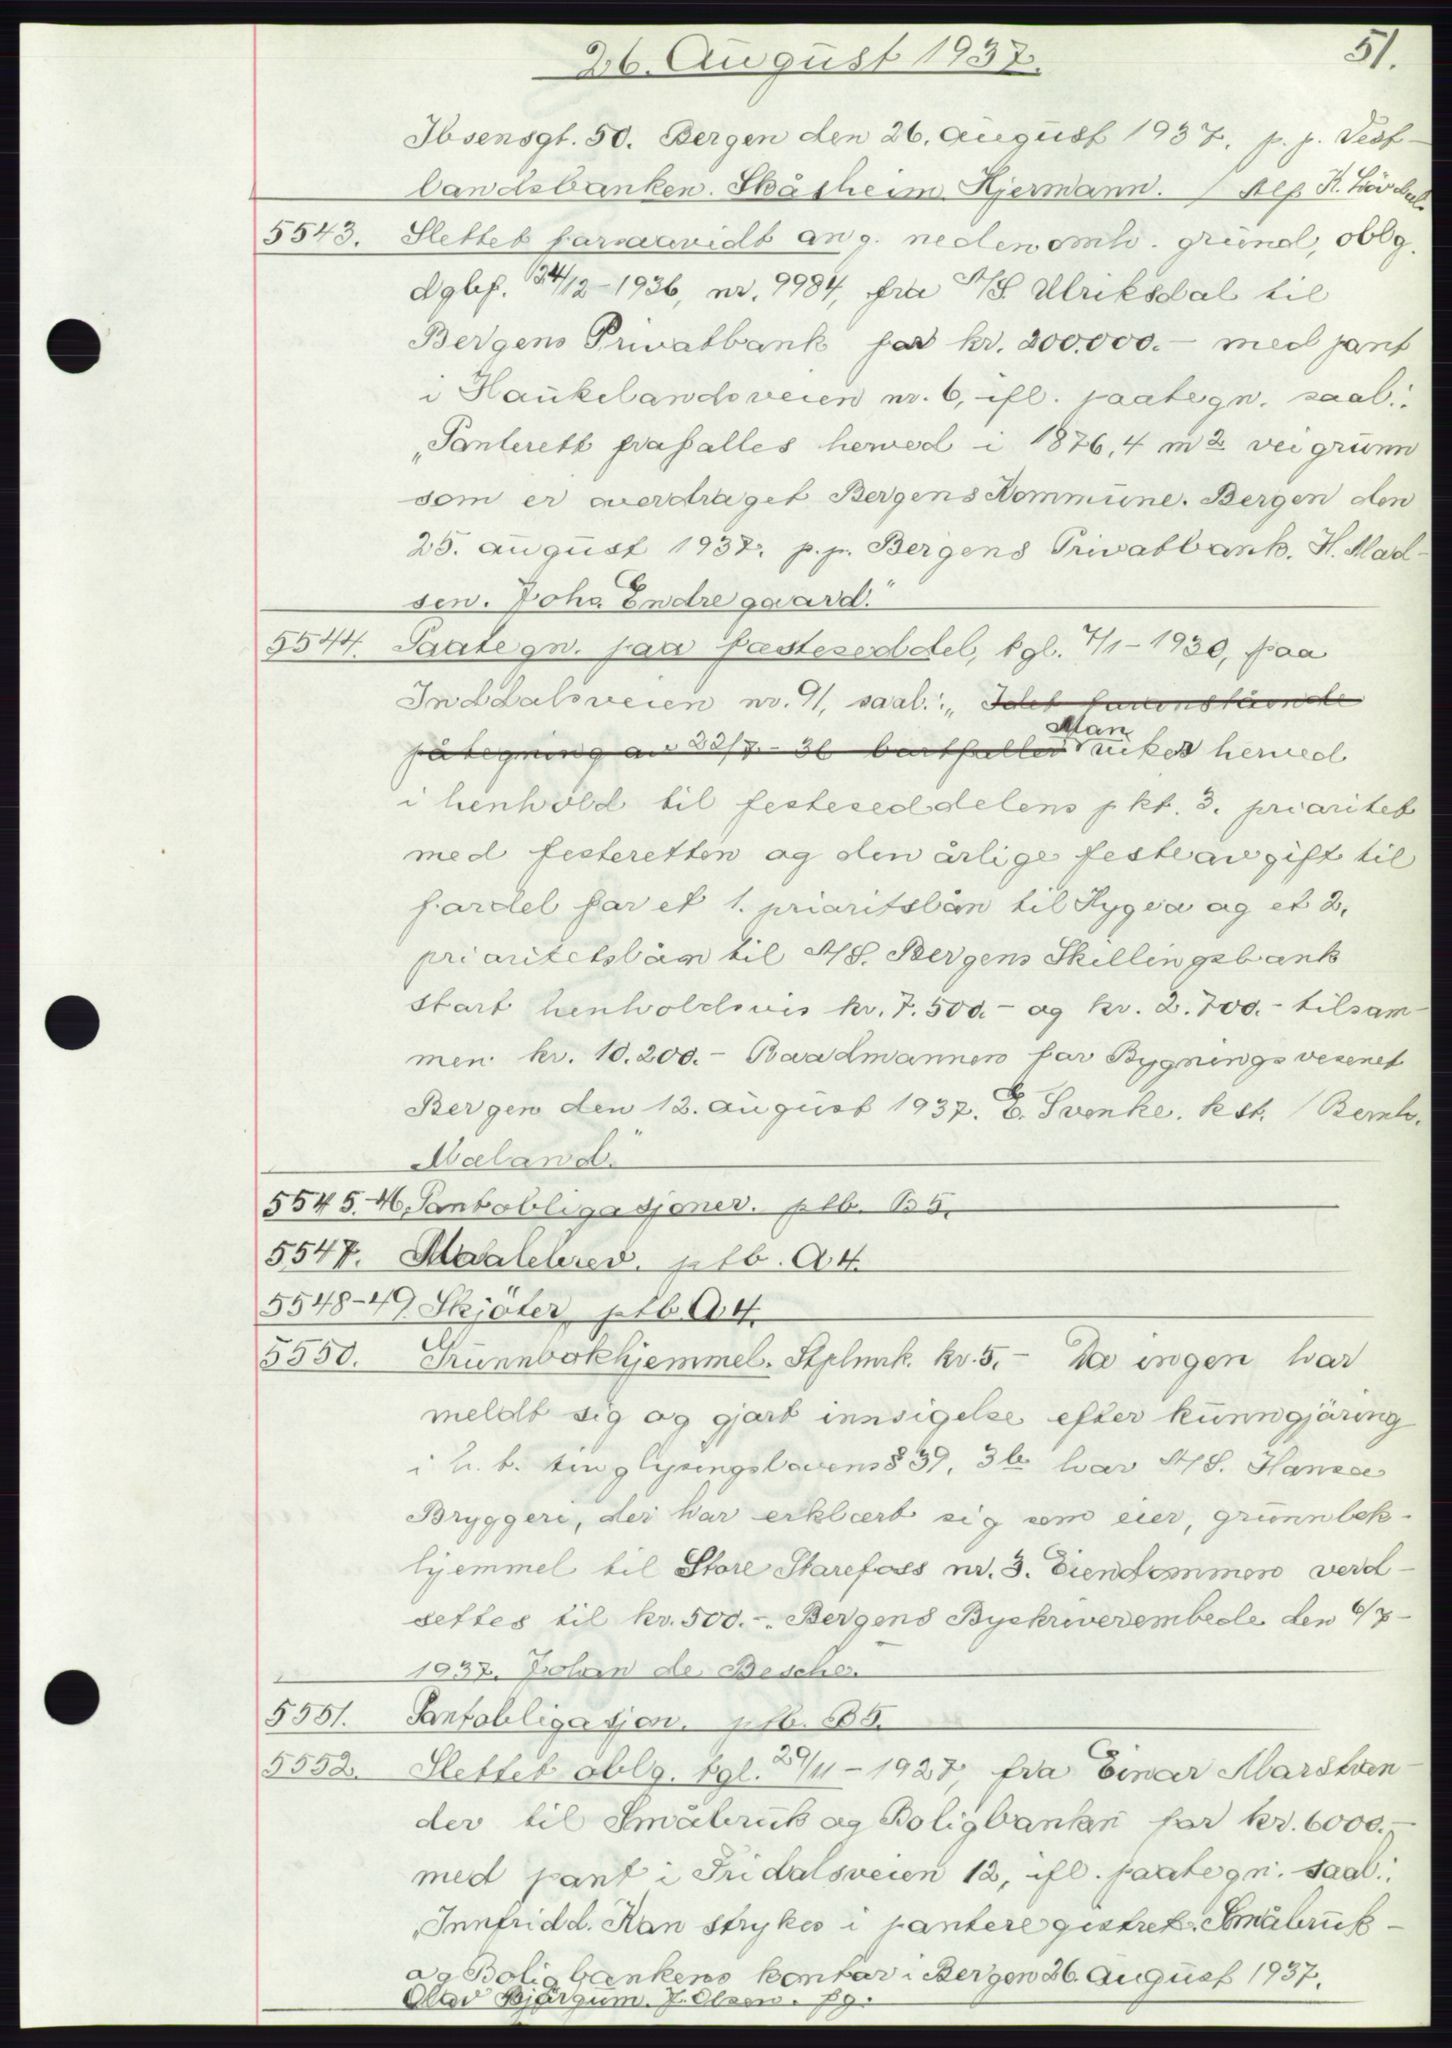 26. August 1937.
51.
Ibsensgt. 50. Bergen den 26. august 1937. p. p. Vest-
landsbanken. Skåsheim. Hjermann. / Alf K. Lövdal.
5543. Slettet forsaavidt ang. nedenomh. grund, oblg.
dglbf. 24/12-1936, nr. 9984, fra A/S. Ulriksdal til
Bergens Privatbank for kr. 200.000.- med pant
i Haukelandsveien nr. 6, ifl. paategn. saal.:
„Panterett frafalles herved i 1876,4 m2 veigrunn
som er overdraget Bergens Kommune. Bergen den
25. august 1937. p.p. Bergens Privatbank. H. Mad-
sen. Johs Endregaard."
5544. Paategn. paa festeseddel, tgl. 7/1-1930, paa
Inddalsveien nr. 91, saal.: „Idet foranstående
påtegning av 22/7-36 bortfaller Man viker herved
i henhold til festeseddelens pkt. 3. prioritet
med festeretten og den årlige festeavgift til
fordel for et 1. prioritslån til Hygea og et 2.
prioritetslån til A/S. Bergens Skillingsbank
stort henholdsvis kr. 7.500.- og kr. 2.700.- tilsam-
men kr. 10.200.- Raadmannen for Bygningsvesenet
Bergen den 12. august 1937. E. Svenke. kst. / Bernh.
Mæland."
5545.-46. Pantobligasjoner. ptb. B5.
5547. Maalebrev. ptb. A4.
5548-49. Skjöter, ptb A4.
5550. Grunnbokhjemmel. Stplmrk. kr. 5.- Da ingen har
meldt sig og gjort innsigelse efter kunngjöring
i h. t. tinglysingslovens § 39, 3 le har A/S. Hansa
Bryggeri, der har erklært sig som eier, grunnbok-
hjemmel til Store Starefoss nr. 3. Eiendommen verd-
settes til kr. 500.-. Bergens Byskriverembede den 6/7-
1937. Johan de Besche.
5551. Pantobligasjon. ptb. B5.
5552. Slettet oblg. tgl. 29/11-1927, fra Einar Marstran-
der til Småbruk og Boligbanken for kr. 6000.-
med pant i Fridalsveien 12, ifl. paategn. saal.:
„Innfridd. Kan strykes i panteregistret. Småbruk-
og Boligbankens kontor i Bergen 26. August 1937.
Olav Bjørgum. J. Olsen. fg.